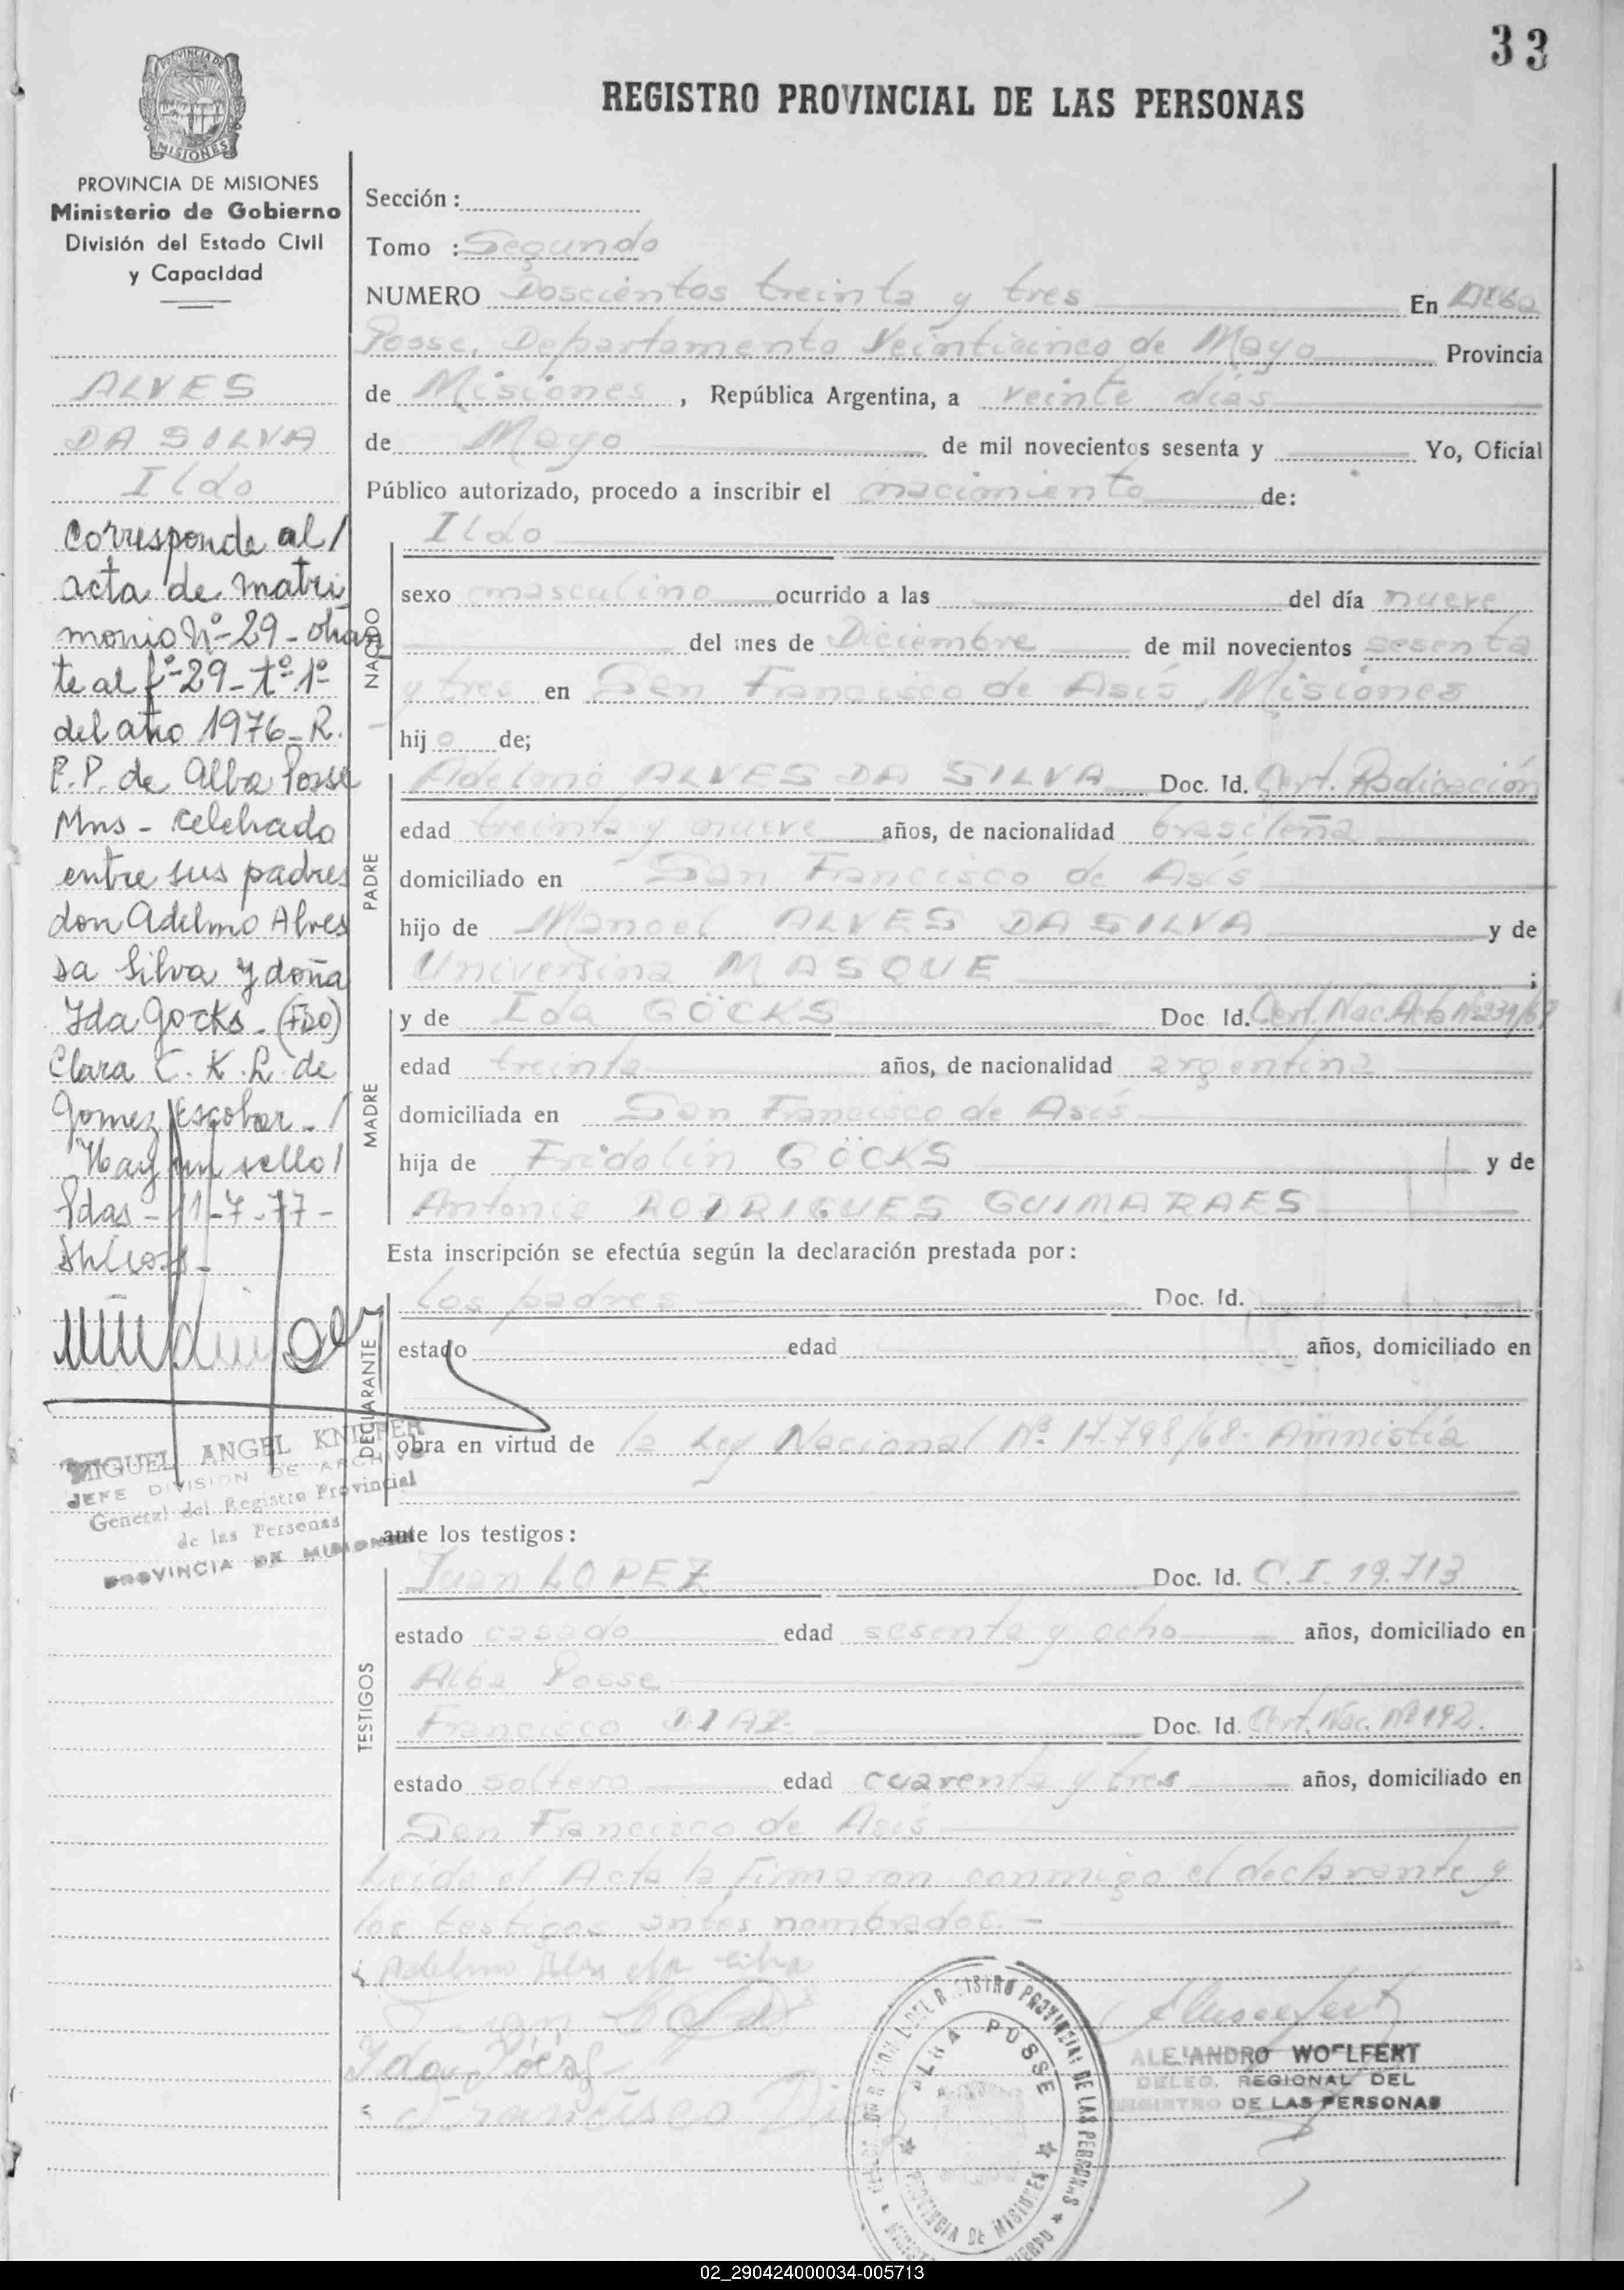 33
REGISTRO PROVINCIAL DE LAS PERSONAS
PROVINCIA DE
MISIONES
PROVINCIA DE MISIONES
Ministerio de Gobierno
División del Estado Civil
y Capacidad
ALVES
DA SILVA
Ildo
Corresponde al/
acta de matri
monio Nº-29-obran
te al fº-29-tº-1º
del año 1976-R.
P.P. de Alba Posse
Mns - celebrado
entre sus padres
don Adelmo Alves
da Silva y doña
Ida Gocks - (FDO)
Clara C. K. L. de
Gomez Escobar - /
Hay un sello/
Pdas - 11-7-77-
MIGUEL ANGEL KNIEFER
JEFE DIVISION DE ARCHIVO
General del Registro Provincial
de las Personas
PROVINCIA DE MISIONES
Sección :
Tomo : Segundo
NUMERO Doscientos treinta y tres En Alba
Posse, Departamento Veinticinco de Mayo Provincia
de Misiones, República Argentina, a veinte días
de Mayo de mil novecientos sesenta y Yo, Oficial
Público autorizado, procedo a inscribir el nacimiento de:
Ildo
NACIDO
sexo masculino ocurrido a las del día nueve
del mes de Diciembre de mil novecientos sesenta
y tres en San Francisco de Asís, Misiones
hijo de;
PADRE
Adelmo ALVES DA SILVA Doc. Id. Cert. Radicación
edad treinta y nueve años, de nacionalidad brasileña
domiciliado en San Francisco de Asís
hijo de Manoel ALVES DA SILVA y de
Universina MASQUE ;
MADRE
y de Ida GÖCKS Doc Id. Cert. Nac. Acta Nº 239/69
edad treinta años, de nacionalidad argentina
domiciliada en San Francisco de Asís
hija de Fridolin GÖCKS y de
Antonia RODRIGUES GUIMARAES
Esta inscripción se efectúa según la declaración prestada por:
DECLARANTE
los padres Doc. Id.
estado edad años, domiciliado en
obra en virtud de la Ley Nacional Nº 17.798/68- Amnistía
ante los testigos:
TESTIGOS
Juan LOPEZ Doc. Id. C.I. 19.713
estado casado edad sesenta y ocho años, domiciliado en
Alba Posse
Francisco DIAZ Doc. Id. Cert. Nac. Nº 192.
estado soltero edad cuarenta y tres años, domiciliado en
San Francisco de Asís
Leída el Acta la firmaron conmigo el declarante y
los testigos antes nombrados.-
Adelmo Alves da Silva
Juan López
Ida Göcks
Francisco Diaz
REGISTRO PROVINCIAL DE LAS PERSONAS
ALBA POSSE
PROVINCIA DE MISIONES
ALEJANDRO WOELFERT
DELEG. REGIONAL DEL
REGISTRO DE LAS PERSONAS
02_290424000034-005713